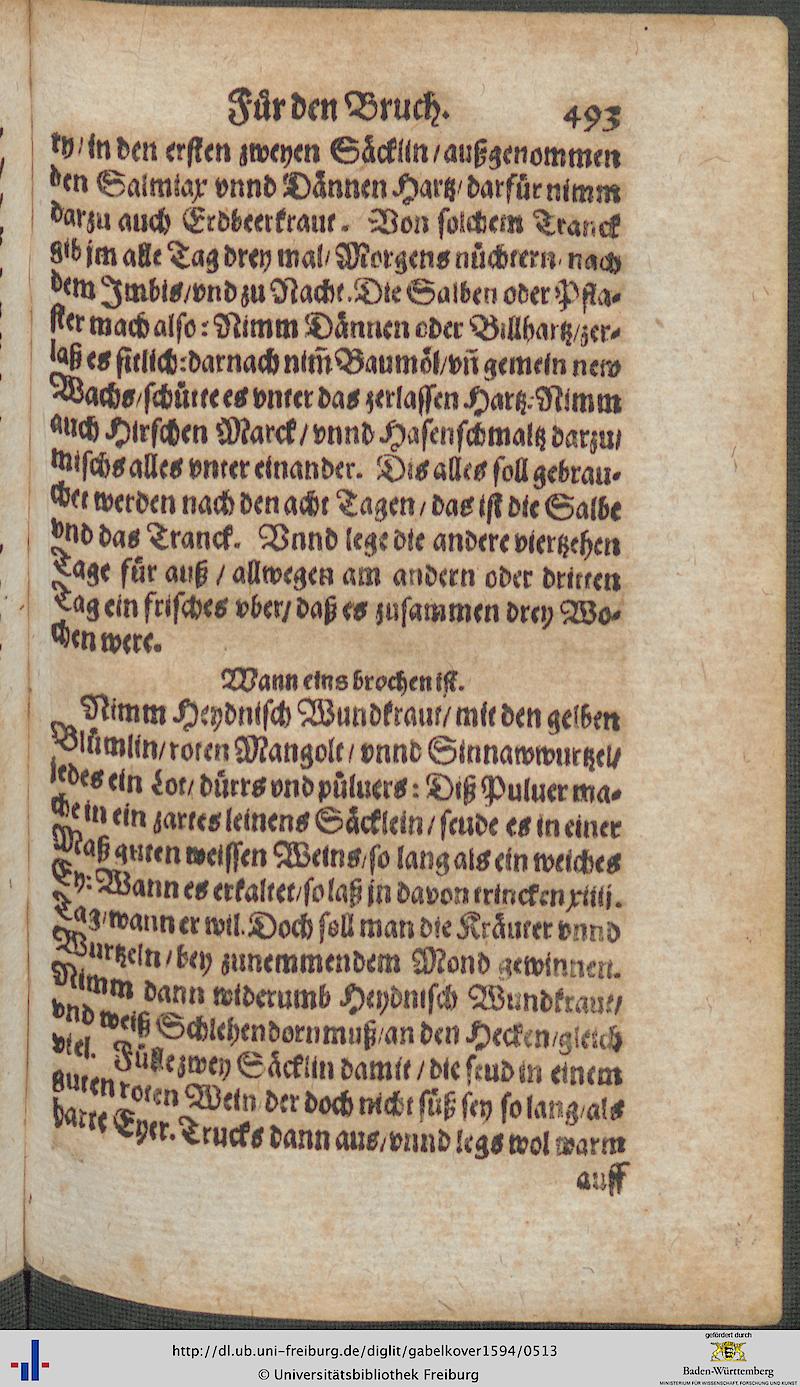 Für den Bruch. 493
ry/in den ersten zweyen Säcklin/außgenommen
den Salmiax vnnd Dännen Hartz/darfür nimm
darzu auch Erdbeerkraut. Von solchem Tranck
gib jm alle Tag drey mal/Morgens nüchtern/nach
dem Imbis/vnd zu Nacht. Die Salben oder Pfla-
ster mach also: Nimm Dännen oder Billhartz/zer-
laß es sitlich: darnach nim̃ Baumöl/vñ gemein new
Wachs/schütte es vnter das zerlassen Hartz: Nimm
auch Hirschen Marck/vnnd Hasenschmaltz darzu/
mischs alles vnter einander. Dis alles soll gebrau-
chet werden nach den acht Tagen/das ist die Salbe
vnd das Tranck. Vnnd lege die andere viertzehen
Tage für auß/allwegen am andern oder dritten
Tag ein frisches vber/daß es zusammen drey Wo-
chen were.
Wann eins brochen ist.
Nimm Heydnisch Wundkraut/mit den gelben
Blümlin/roten Mangolt/vnnd Sinnawwurtzel/
jedes ein Lot/dürrs vnd pülvers: Diß Puluer ma-
che in ein zartes leinens Säcklein/seude es in einer
Maß guten weissen Weins/so lang als ein weiches
Ey: Wann es erkaltet/so laß jn davon trincken xiiij.
Tag/wann er wil. Doch soll man die Kräuter vnnd
Wurtzeln/bey zunemmendem Mond gewinnen.
Nimm dann widerumb Heydnisch Wundkraut/
vnd weiß Schlehendornmuß/an den Hecken/gleich
viel. Fülle zwey Säcklin damit/die seud in einem
guten roten Wein der doch nicht süß sey so lang/als
harte Eyer. Trucks dann aus/vnnd legs wol warm
auff
http://dl.ub.uni-freiburg.de/diglit/gabelkover1594/0513
© Universitätsbibliothek Freiburg
gefördert durch
Baden-Württemberg
MINISTERIUM FÜR WISSENSCHAFT, FORSCHUNG UND KUNST